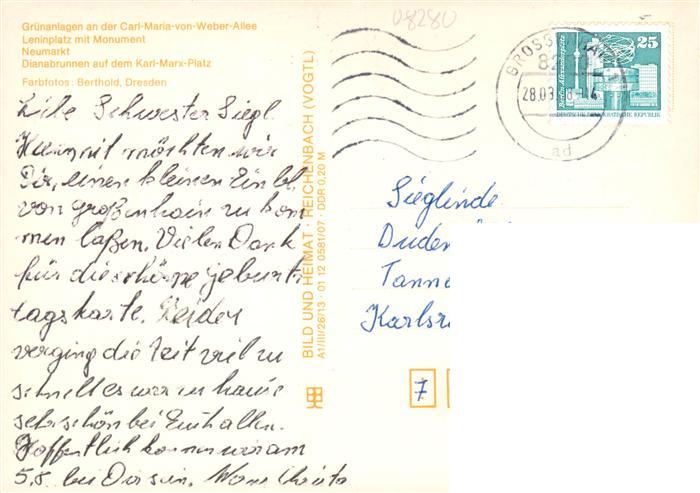 Grünanlagen an der Carl-Maria-von-Weber-Allee
Leninplatz mit Monument
Neumarkt
Dianabrunnen auf dem Karl-Marx-Platz
Farbfotos: Berthold, Dresden
Liebe Schwester Siegl.
Hiermit möchten wir
Dir, einen kleinen Einbl.
von Großenhain zu kom
men laßen. Vielen Dank
für die schöne geburts
tagskarte. Leider
verging die Zeit viel zu
schnell es war zu hause
sehr schön bei Euch allen.
Hoffentlich können wir am
5.8. bei Dir sein.
BILD UND HEIMAT · REICHENBACH (VOGTL)
A1/III/26/13 · 01 12 0581/07 · DDR 0,20 M
08280
GROSS
28.03.
ad
25
Berlin, Alexanderplatz
DEUTSCHE DEMOKRATISCHE REPUBLIK
Sieglinde
Duden
Tanne
Karlsr
7